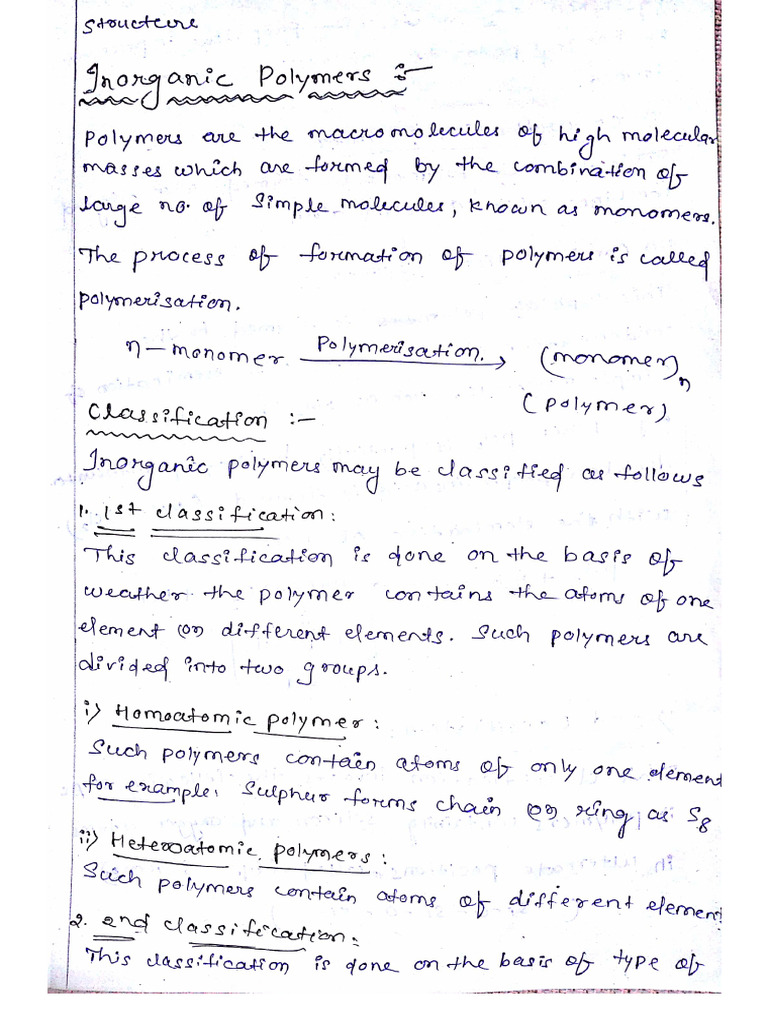 Structure
Inorganic Polymers :-
Polymers are the macromolecules of high molecular
masses which are formed by the combination of
large no. of simple molecules, known as monomers.
The process of formation of polymers is called
polymerisation.
n-monomer Polymerisation. → (monomer)n
(polymer)
Classification :-
Inorganic polymers may be classified as follows
1. 1st classification:
This classification is done on the basis of
weather the polymer contains the atoms of one
element or different elements. Such polymers are
divided into two groups.
i) Homoatomic polymer:
Such polymers contain atoms of only one element
for example, Sulphur forms chain or ring, as S8
ii) Heteroatomic polymers:
Such polymers contain atoms of different element
2. 2nd classification:
This classification is done on the basis of type of